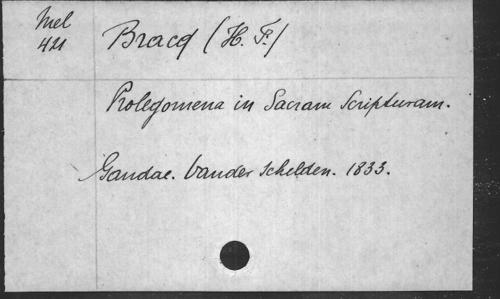 Mel
421
Bracq (H. F.)
Prolegomena in Sacram Scripturam.
Gandae. Vander Schelden. 1833.